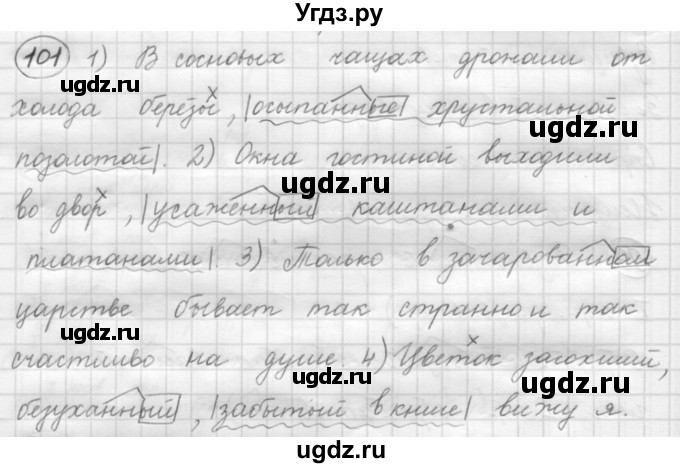 Угдз.ру
101 1) В сосновых чащах дрожали от
холода берёзы, |осыпанные хрустальной
позолотой|. 2) Окна гостиной выходили
во двор, |усаженный каштанами и
платанами|. 3) Только в зачарованном
царстве бывает так странно и так
счастливо на душе 4) Цветок засохший,
безуханный, |забытый в книге| вижу я.
угдз.ру
угдз.ру
угдз.ру
угдз.ру
угдз.ру
угдз.ру
угдз.ру
угдз.ру
Угдз.ру